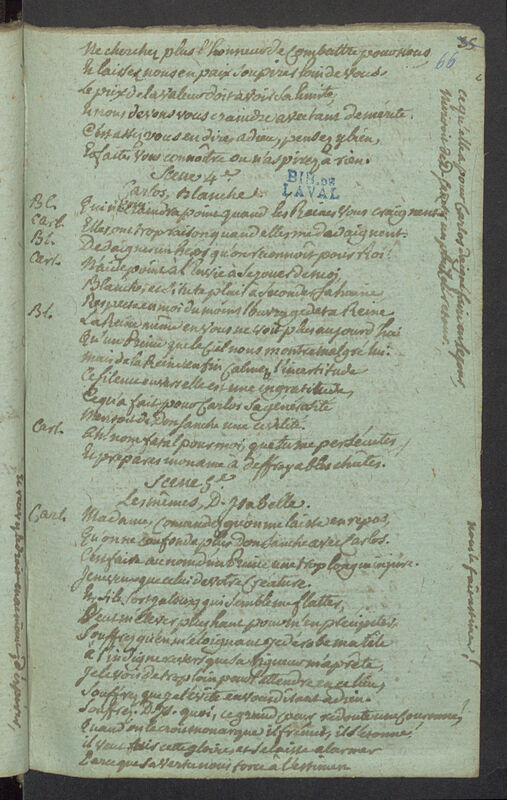 35
66
Ne cherchez plus l'honneur de combattre pour nous
Et laissez nous en paix soupirer loin de vous.
Le prix de la valeur doit avoir sa limite,
Et nous devons vous craindre avec tant de mérite.
C'est assez vous en dire, adieu, pensez y bien,
Et faites vous connoître ou n'aspirez à rien.
Scene 4.e
Carlos, Blanche.
BIB. DE
LAVAL
Bl. Qui ne craindra point quand les Reines vous craignent
Carl. Elles ont trop raison quand elles me dédaignent.
Bl. Dédaigner un héros qu'on reconnoit pour Roi!
Carl. N'aide point à l'envie à se jouer de moi,
Blanche, et si tu te plais à seconder sa haine
Respecte en moi du moins l'ouvrage de ta Reine
Bl. La Reine même en vous ne voit plus aujourd'hui
Qu'un Prince que le Ciel nous montre malgré lui.
Mais de la Reine enfin calmez l'incertitude
Ce silence envers elle est une ingratitude,
Ce qu'a fait pour Carlos sa générosité
Don Sanche une civilité.
Carl. Ah! nom fatal pour moi, que tu me persécutes,
Et prepares mon ame à d'effroyables chutes.
Scene 5.e
Les mêmes, D. Isabelle.
Carl. Madame, comandez qu'on me laisse en repos,
Qu'on ne confonde plus Don Sanche avec Carlos.
C'est faire au nom d'un Prince une trop longue injure.
Je ne veux que celui de votre Creature.
Et si le sort jaloux qui semble me flatter,
Veut m'élever plus haut pour m'en précipiter.
Souffrez qu'en m'éloignant je dérobe ma tête
à l'indigne revers que sa rigueur m'aprête,
Je le vois de trop loin pour l'attendre en ce lieu,
Souffrez que je l'évite en vous disant adieu.
Souffrez. D.I. quoi, ce grand cœur redoute une couronne!
Quand on le croit monarque il frémit, il s'étonne!
il veut fuir cette gloire, et se laisse alarmer
De ce que sa vertu nous force à l'estimer
ce qu'elle a pour Carlos